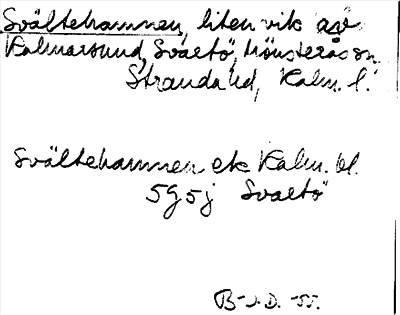 Svältehamnen, liten vik av
Kalmarsund, Svaltö, Mönsterås sn,
Stranda hd, Kalm. l.
Svältehamnen ek Kalm. bl.
5g5j Svaltö
B-J.D. -55.